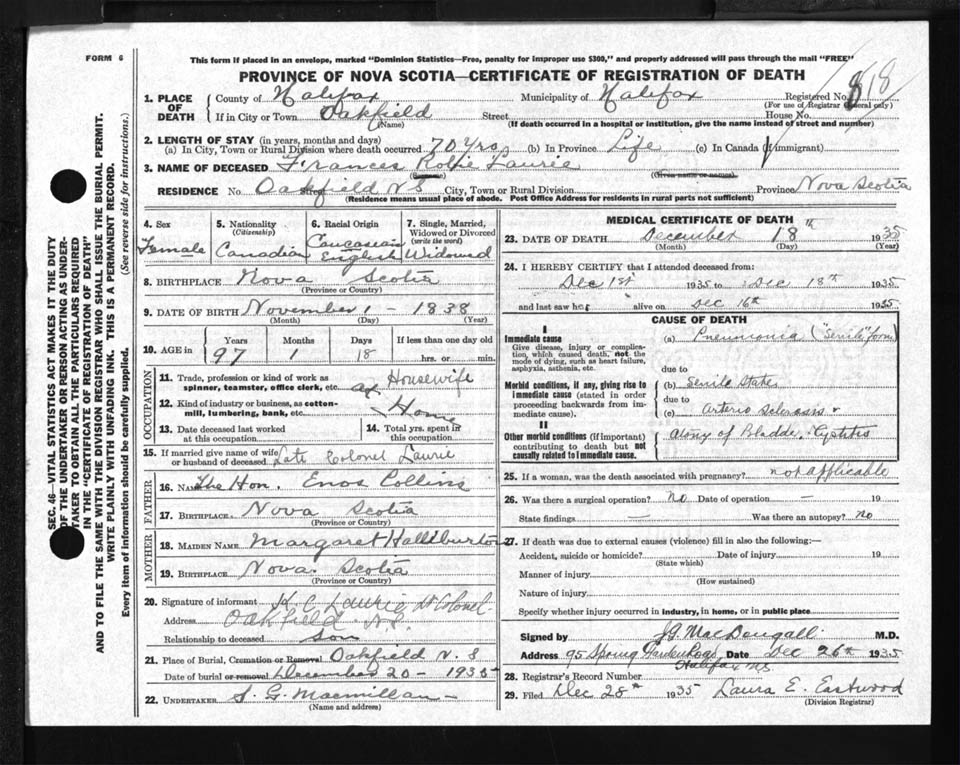 FORM 6
This form if placed in an envelope, marked "Dominion Statistics—Free, penalty for improper use $300," and properly addressed will pass through the mail "FREE"
PROVINCE OF NOVA SCOTIA—CERTIFICATE OF REGISTRATION OF DEATH
1. PLACE OF DEATH { County of Halifax Municipality of Halifax Registered No. 818
(For use of Registrar General only)
If in City or Town Oakfield Street House No.
(Name) (If death occurred in a hospital or institution, give the name instead of street and number)
2. LENGTH OF STAY (in years, months and days)
(a) In City, Town or Rural Division where death occurred 70 yrs (b) In Province Life (c) In Canada (if immigrant)
3. NAME OF DECEASED Frances Laurie
RESIDENCE No. Oakfield N S City, Town or Rural Division Province Nova Scotia
(Residence means usual place of abode. Post Office Address for residents in rural parts not sufficient)
4. Sex Female
5. Nationality (Citizenship) Canadian
6. Racial Origin Caucasean English
7. Single, Married, Widowed or Divorced (write the word) Widowed
8. BIRTHPLACE Nova Scotia
(Province or Country)
9. DATE OF BIRTH November 1 - 1838
(Month) (Day) (Year)
10. AGE in Years Months Days If less than one day old
97 1 18 hrs. or min.
OCCUPATION
11. Trade, profession or kind of work as spinner, teamster, office clerk, etc. Housewife
12. Kind of industry or business, as cotton-mill, lumbering, bank, etc. Home
13. Date deceased last worked at this occupation
14. Total yrs. spent in this occupation
15. If married give name of wife or husband of deceased Late Colonel Laurie
FATHER
16. Name The Hon. Enos Collins
17. Birthplace Nova Scotia
(Province or Country)
MOTHER
18. Maiden Name Margaret Halliburton
19. Birthplace Nova Scotia
(Province or Country)
20. Signature of informant K C Laurie Lt Colonel
Address Oakfield N.S.
Relationship to deceased Son
21. Place of Burial, Cremation or Removal Oakfield N. S
Date of burial or removal December 20 - 1935
22. UNDERTAKER S. G. Macmillan
(Name and address)
MEDICAL CERTIFICATE OF DEATH
23. DATE OF DEATH December 18th 1935
(Month) (Day) (Year)
24. I HEREBY CERTIFY that I attended deceased from:
Dec 1st 1935 to Dec 18th 1935
and last saw her alive on Dec 16th 1935
CAUSE OF DEATH
I
Immediate cause
Give disease, injury or complication, which caused death, not the mode of dying, such as heart failure, asphyxia, asthenia, etc.
(a) Pneumonia ("Senile" form)
due to
Morbid conditions, if any, giving rise to immediate cause (stated in order proceeding backwards from immediate cause).
(b) Senile State
due to
(c) Arterio Sclerosis &
II
Other morbid conditions (if important) contributing to death but not causally related to immediate cause.
Atony of Bladder. Cystitis
25. If a woman, was the death associated with pregnancy? not applicable
26. Was there a surgical operation? no Date of operation — 19
State findings — Was there an autopsy? no
27. If death was due to external causes (violence) fill in also the following:—
Accident, suicide or homicide? Date of injury 19
(State which)
Manner of injury
(How sustained)
Nature of injury
Specify whether injury occurred in industry, in home, or in public place
Signed by J G MacDougall M.D.
Address 95 Spring Garden Road Date Dec 26th 1935
Halifax N.S.
28. Registrar's Record Number
29. Filed Dec 28th 1935 Laura E. Eastwood
(Division Registrar)
SEC. 46—VITAL STATISTICS ACT MAKES IT THE DUTY
OF THE UNDERTAKER OR PERSON ACTING AS UNDER-
TAKER TO OBTAIN ALL THE PARTICULARS REQUIRED
IN THE "CERTIFICATE OF REGISTRATION OF DEATH"
AND TO FILE THE SAME WITH THE DIVISION REGISTRAR WHO SHALL ISSUE THE BURIAL PERMIT.
WRITE PLAINLY WITH UNFADING INK. THIS IS A PERMANENT RECORD.
Every item of information should be carefully supplied. (See reverse side for instructions.)